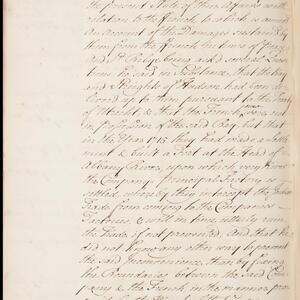 the present State of their Affairs with
relation to the French, to which is annexed
an Account of the Damages sustained by
them from the French in time of Peace
And Mr Pitts being asked several Questions
he said in Substance, that the Bay
and Streights of Hudson had been de-
livered up to them pursuant to the Treaty
of Utrecht & that the French were now
in possession of the said Bay, but that
in the Year 1715 they had made a settle-
ment & built a Fort at the Head of
Albany River, upon which very River
the Company's Principal Factory is
settled, whereby they intercept the Indian
Trade from coming to the Companies
Factories, & will in time utterly ruin
the Trade, if not prevented. And that He
did not know any other way to prevent
the said Inconvenience, than by fixing
the Boundaries between the said Com-
pany & the French in the manner